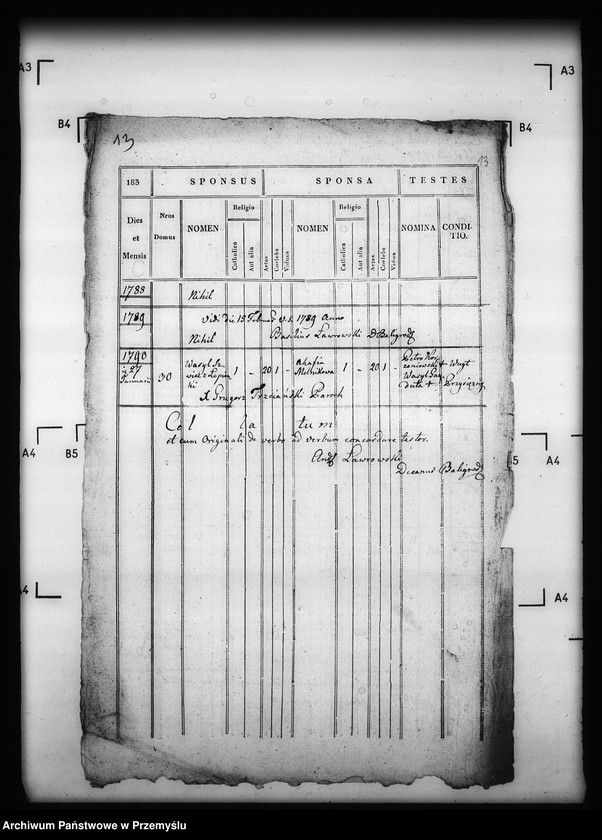 A3
A3
B4
B4
13
13
183
SPONSUS
SPONSA
TESTES
Dies
et
Mensis
Nrus
Domus
NOMEN
Religio
Catholica
Aut alia
Aetas
Coelebs
Viduus
NOMEN
Religio
Catholica
Aut alia
Aetas
Coelebs
Vidua
NOMINA
CONDI-
TIO.
1788
Nihil
1789
Vidi die 15 1789 Anno
Nihil
Basilius Ławrowski D Baligrod
1790
27
Januarii
30
Wasyl
ki
1 - 20 1 -
Melnikowa
1 - 20 1 -
Petro
Wasyl
+ Woyt
Przysiężn
X Grzegorz Trzciański Paroch
Col la tum
et cum Originali de verbo ad verbum concordare testor.
Ławrowski
Decanus Baligrod
A4
B5
B5
A4
A4
A4
Archiwum Państwowe w Przemyślu